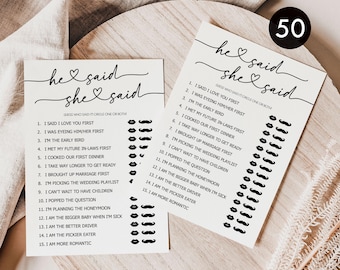 50
he said
she said
GUESS WHO SAID TO CIRCLE ONE OR BOTH
1. I SAID I LOVE YOU FIRST
2. I WAS EYEING HIM/HER FIRST
3. I'M THE EARLY BIRD
4. I MET MY FUTURE IN-LAWS FIRST
5. I COOKED OUR FIRST DINNER
6. I TAKE WAY LONGER TO GET READY
7. I BROUGHT UP MARRIAGE FIRST
8. I'M PICKING THE WEDDING PLAYLIST
9. I CAN'T WAIT TO HAVE CHILDREN
10. I POPPED THE QUESTION
11. I'M PLANNING THE HONEYMOON
12. I AM THE BIGGER BABY WHEN I'M SICK
13. I AM THE BETTER DRIVER
14. I AM THE PICKIER EATER
15. I AM MORE ROMANTIC
he said
she said
1. I SAID I LOVE YOU FIRST
2. I WAS EYEING HIM/HER FIRST
3. I'M THE EARLY BIRD
4. I MET MY FUTURE IN-LAWS FIRST
5. I COOKED OUR FIRST DINNER
6. I TAKE WAY LONGER TO GET READY
7. I BROUGHT UP MARRIAGE FIRST
8. I'M PICKING THE WEDDING PLAYLIST
9. I CAN'T WAIT TO HAVE CHILDREN
10. I POPPED THE QUESTION
11. I'M PLANNING THE HONEYMOON
12. I AM THE BIGGER BABY WHEN I'M SICK
13. I AM THE BETTER DRIVER
14. I AM THE PICKIER EATER
15. I AM MORE ROMANTIC